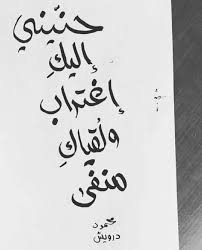 حنّيني
إليكِ
إغتراب
ولُقياكِ
منفى
محمود
درويش